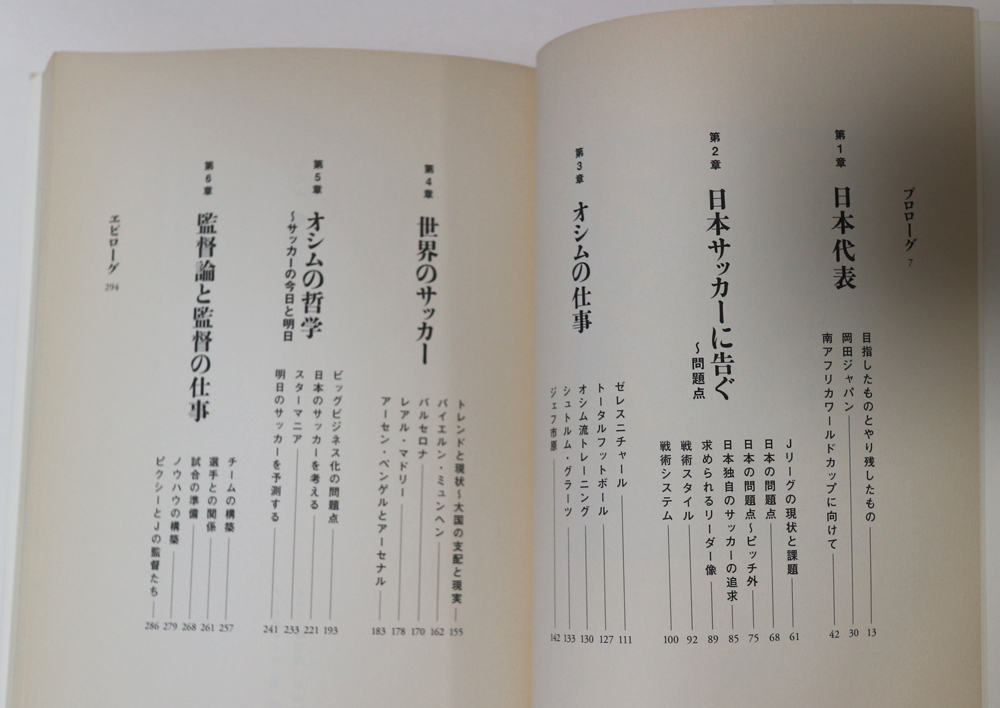 プロローグ 7
第1章 日本代表
目指したものとやり残したもの 13
岡田ジャパン 30
南アフリカワールドカップに向けて 42
第2章 日本サッカーに告ぐ
～問題点
Jリーグの現状と課題 61
日本の問題点 68
日本の問題点～ピッチ外 75
日本独自のサッカーの追求 85
求められるリーダー像 89
戦術スタイル 92
戦術システム 100
第3章 オシムの仕事
ゼレズニチャール 111
トータルフットボール 127
オシム流トレーニング 130
シュトルム・グラーツ 133
ジェフ市原 142
第4章 世界のサッカー
トレンドと現状～大国の支配と現実 155
バイエルン・ミュンヘン 162
バルセロナ 170
レアル・マドリー 178
アーセン・ベンゲルとアーセナル 183
第5章 オシムの哲学
～サッカーの今日と明日
ビッグビジネス化の問題点 193
日本のサッカーを考える 221
スターマニア 233
明日のサッカーを予測する 241
第6章 監督論と監督の仕事
チームの構築 257
選手との関係 261
試合の準備 268
ノウハウの構築 279
ピクシーとJの監督たち 286
エピローグ 294